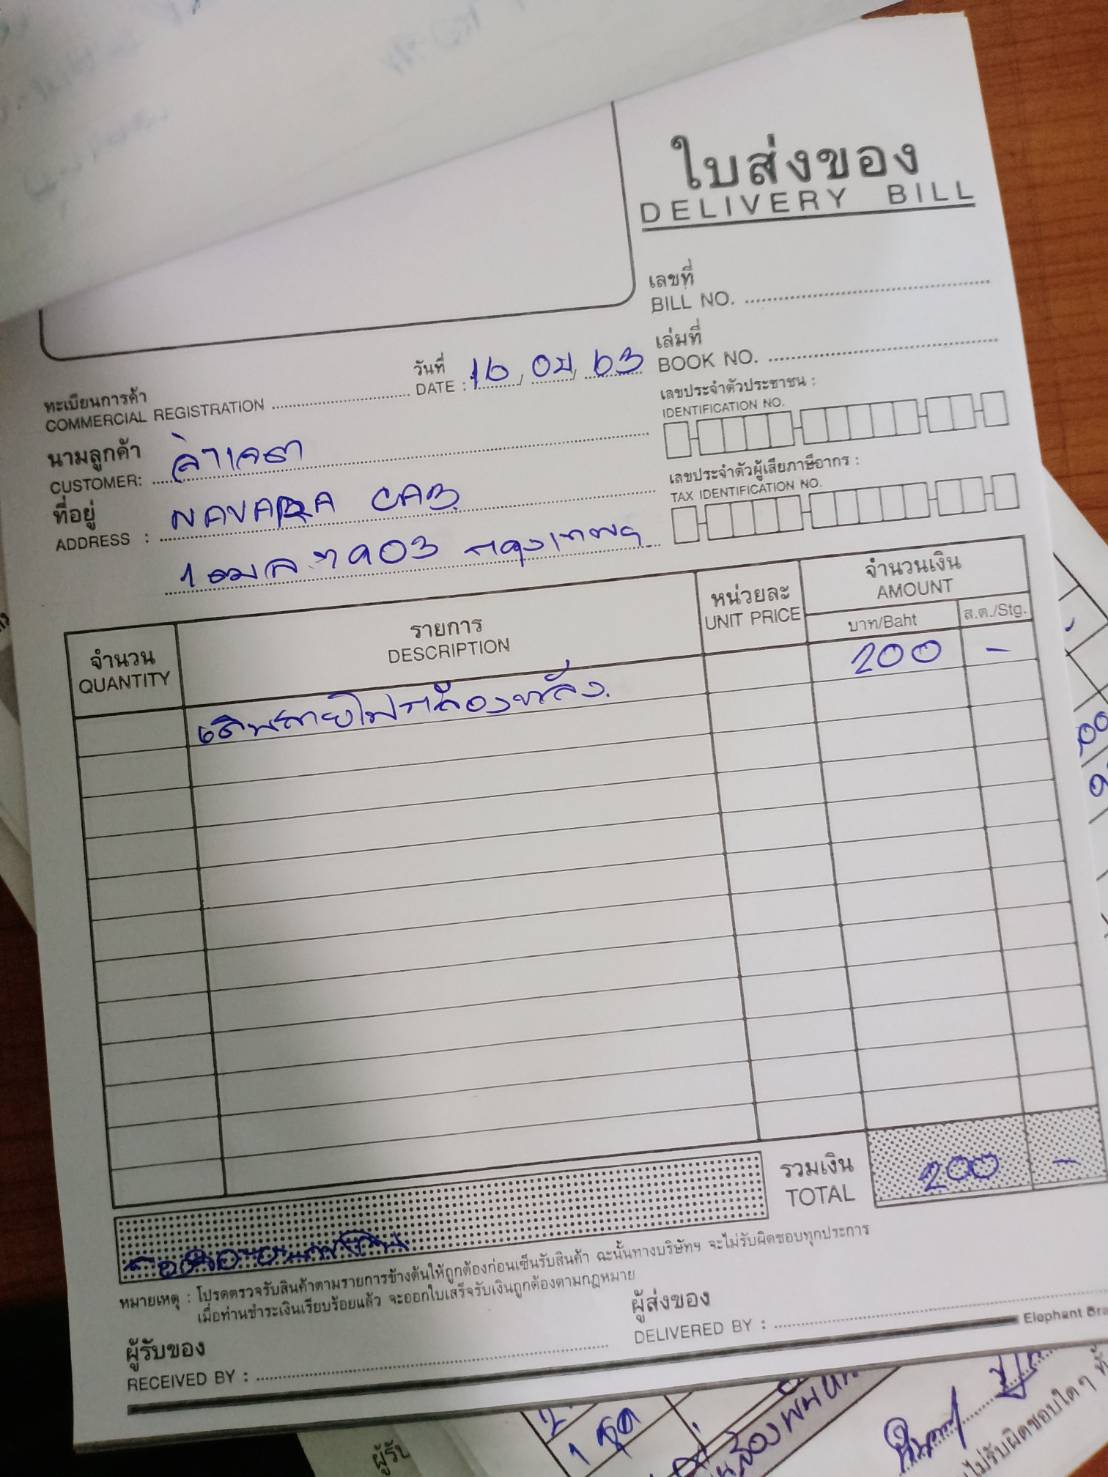 ใบส่งของ
DELIVERY BILL
เลขที่
BILL NO.
เล่มที่
BOOK NO.
วันที่
DATE : 16, 04, 63
ทะเบียนการค้า
COMMERCIAL REGISTRATION
เลขประจำตัวประชาชน :
IDENTIFICATION NO.
นามลูกค้า
CUSTOMER:
ที่อยู่
ADDRESS : NAVARA CAB
กรุงเทพฯ
เลขประจำตัวผู้เสียภาษีอากร :
TAX IDENTIFICATION NO.
จำนวน
QUANTITY
รายการ
DESCRIPTION
หน่วยละ
UNIT PRICE
จำนวนเงิน
AMOUNT
บาท/Baht
ส.ต./Stg.
เดินสายไฟกล้องหลัง. 200 -
รวมเงิน
TOTAL
200 -
หมายเหตุ : โปรดตรวจรับสินค้าตามรายการข้างต้นให้ถูกต้องก่อนเซ็นรับสินค้า ฉะนั้นทางบริษัทฯ จะไม่รับผิดชอบทุกประการ
เมื่อท่านชำระเงินเรียบร้อยแล้ว จะออกใบเสร็จรับเงินถูกต้องตามกฎหมาย
ผู้รับของ
RECEIVED BY :
ผู้ส่งของ
DELIVERED BY :
Elephant
1 ชุด
ไม่รับผิดชอบใดๆ